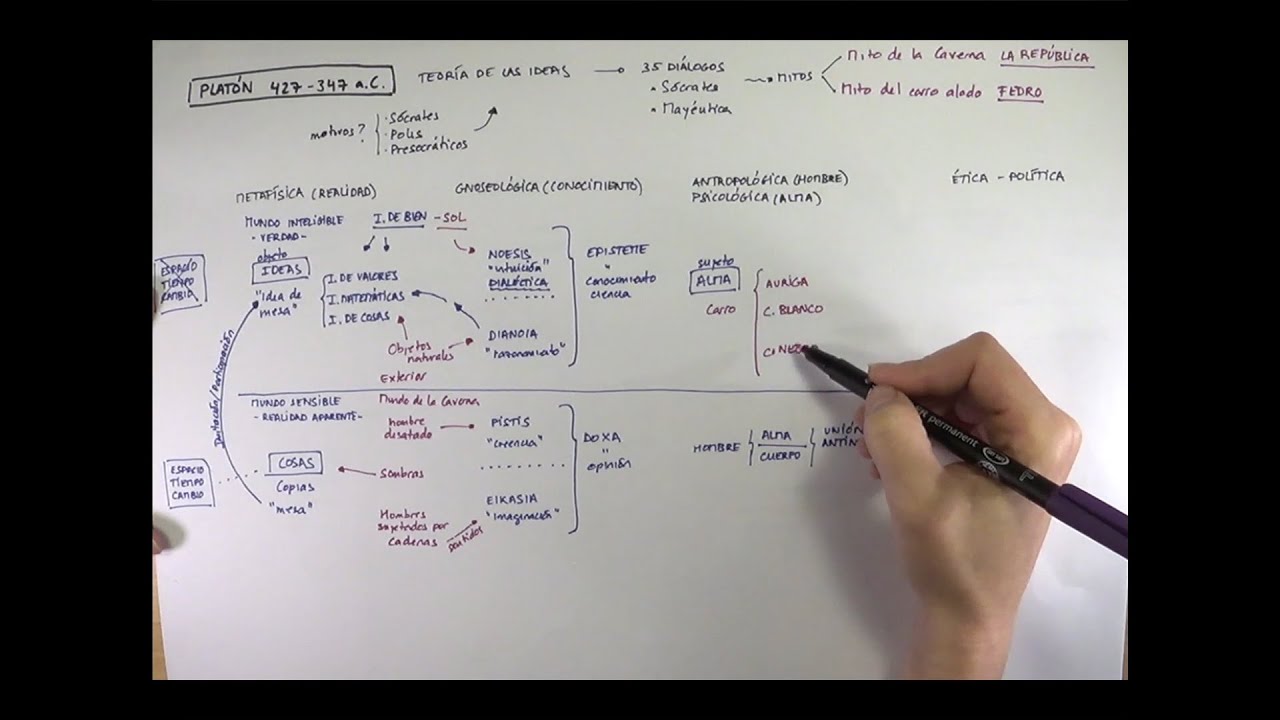 PLATÓN 427-347 a.C.
TEORÍA DE LAS IDEAS
35 DIÁLOGOS
• Sócrates
• Mayéutica
MITOS
Mito de la Caverna LA REPÚBLICA
Mito del carro alado FEDRO
motivos?
• Sócrates
• Polis
• Presocráticos
METAFÍSICA (REALIDAD)
GNOSEOLÓGICA (CONOCIMIENTO)
ANTROPOLÓGICA (HOMBRE)
PSICOLÓGICA (ALMA)
ÉTICA - POLÍTICA
MUNDO INTELIGIBLE
- VERDAD -
objeto
IDEAS
"idea de
mesa"
ESPACIO
TIEMPO
CAMBIO
I. DE BIEN - SOL
I. DE VALORES
I. MATEMÁTICAS
I. DE COSAS
Objetos
naturales
Exterior
NOESIS
"intuición"
DIALÉCTICA
DIANOIA
"razonamiento"
EPISTEME
"
conocimiento
ciencia
sujeto
ALMA
carro
AURIGA
C. BLANCO
Imitación/Participación
MUNDO SENSIBLE
- REALIDAD APARENTE -
Mundo de la Caverna
hombre
desatado
Sombras
Hombres
sujetados por
cadenas
sentidos
ESPACIO
TIEMPO
CAMBIO
COSAS
Copias
"mesa"
PISTIS
"creencia"
EIKASIA
"imaginación"
DOXA
"
opinión
HOMBRE
ALMA
CUERPO
UNIÓN
permanent